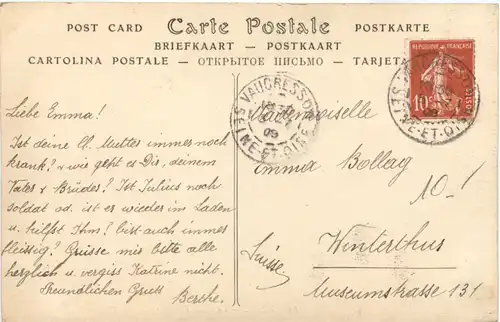 POST CARD Carte Postale POSTKARTE
BRIEFKAART — POSTKAART
CARTOLINA POSTALE — ОТКРЫТОЕ ПИСЬМО — TARJETA
REPUBLIQUE FRANÇAISE
10c
POSTES
VAUCRESSON
09
SEINE-ET-OISE
SEINE-ET-OISE
Liebe Emma!
Ist deine lb. Mutter immer noch
krank? & wie geht es Dir, deinem
Vater & Bruder? Ist Julius noch
soldat od. ist er wieder im Laden
u. hilfst Ihm? bist auch immer
fleissig? Grüsse mir bitte alle
herzlich u. vergiss Katrine nicht.
Freundlichen Gruss
Berthe.
Mademoiselle
Emma Bollag
10.-!
Winterthur
Suisse.
Museumstrasse 131